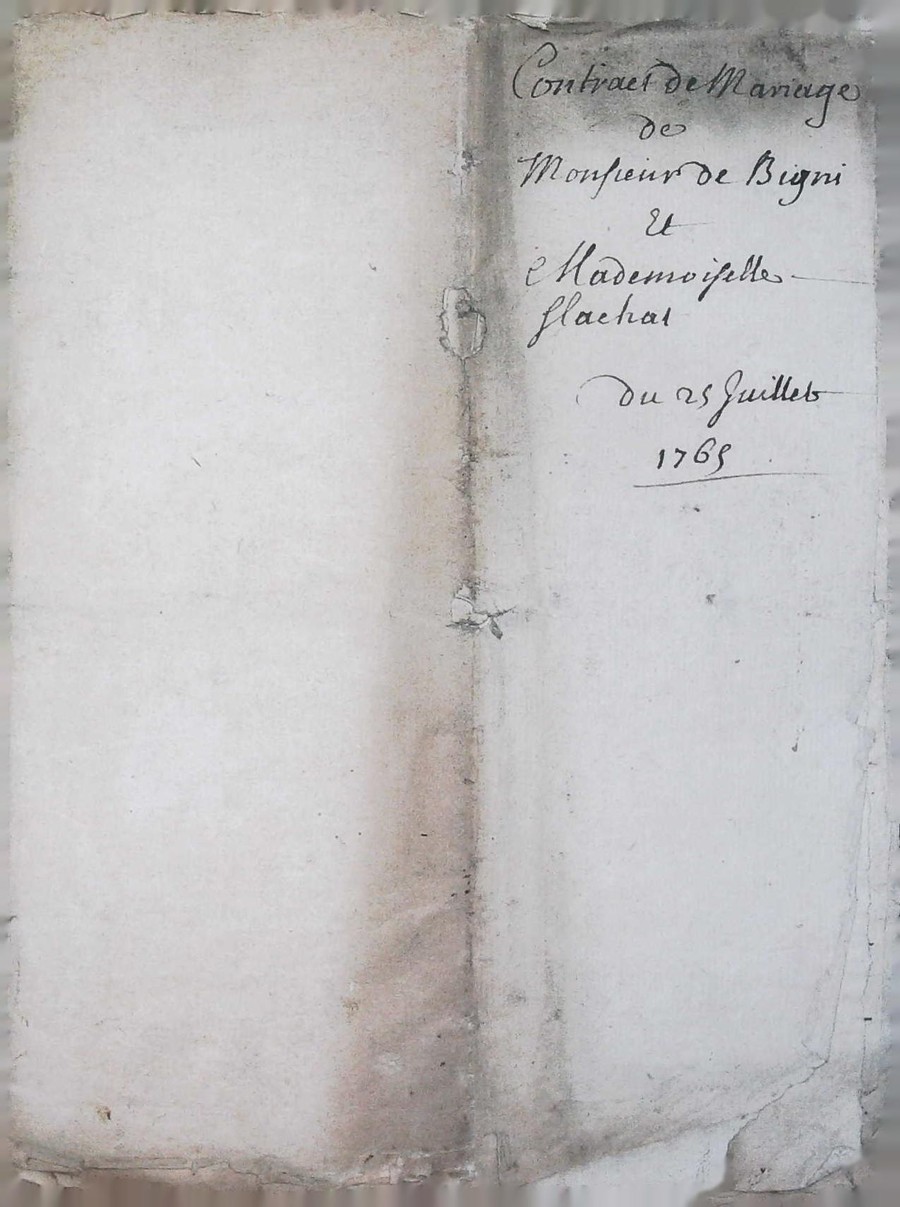 Contract de Mariage
de
Monsieur de Bigni
Et
Mademoiselle
flachat
du 25 Juillet
1765